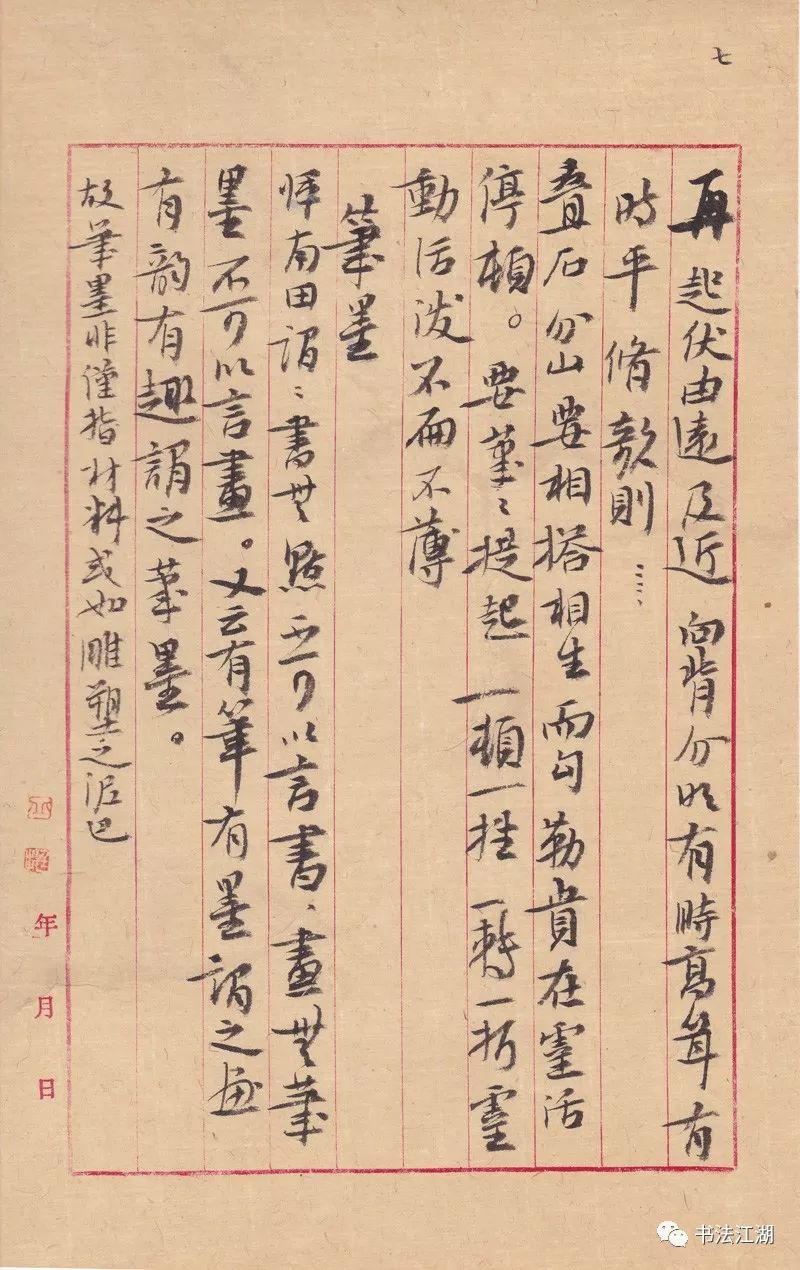 七
再起伏由遠及近向背分明有時高聳有
時平脩欹則……
叠石分山要相搭相生而勾勒貴在靈活
停頓。要筆〻提起一頓一挫一轉一折靈
動活潑不扁不薄
筆墨
惲南田謂：書無點畫不可以言書、畫無筆
墨不可以言畫。又云有筆有墨謂之畫
有韵有趣謂之筆墨。
故筆墨非僅指材料或如雕塑之泥巴
年 月 日
书法江湖